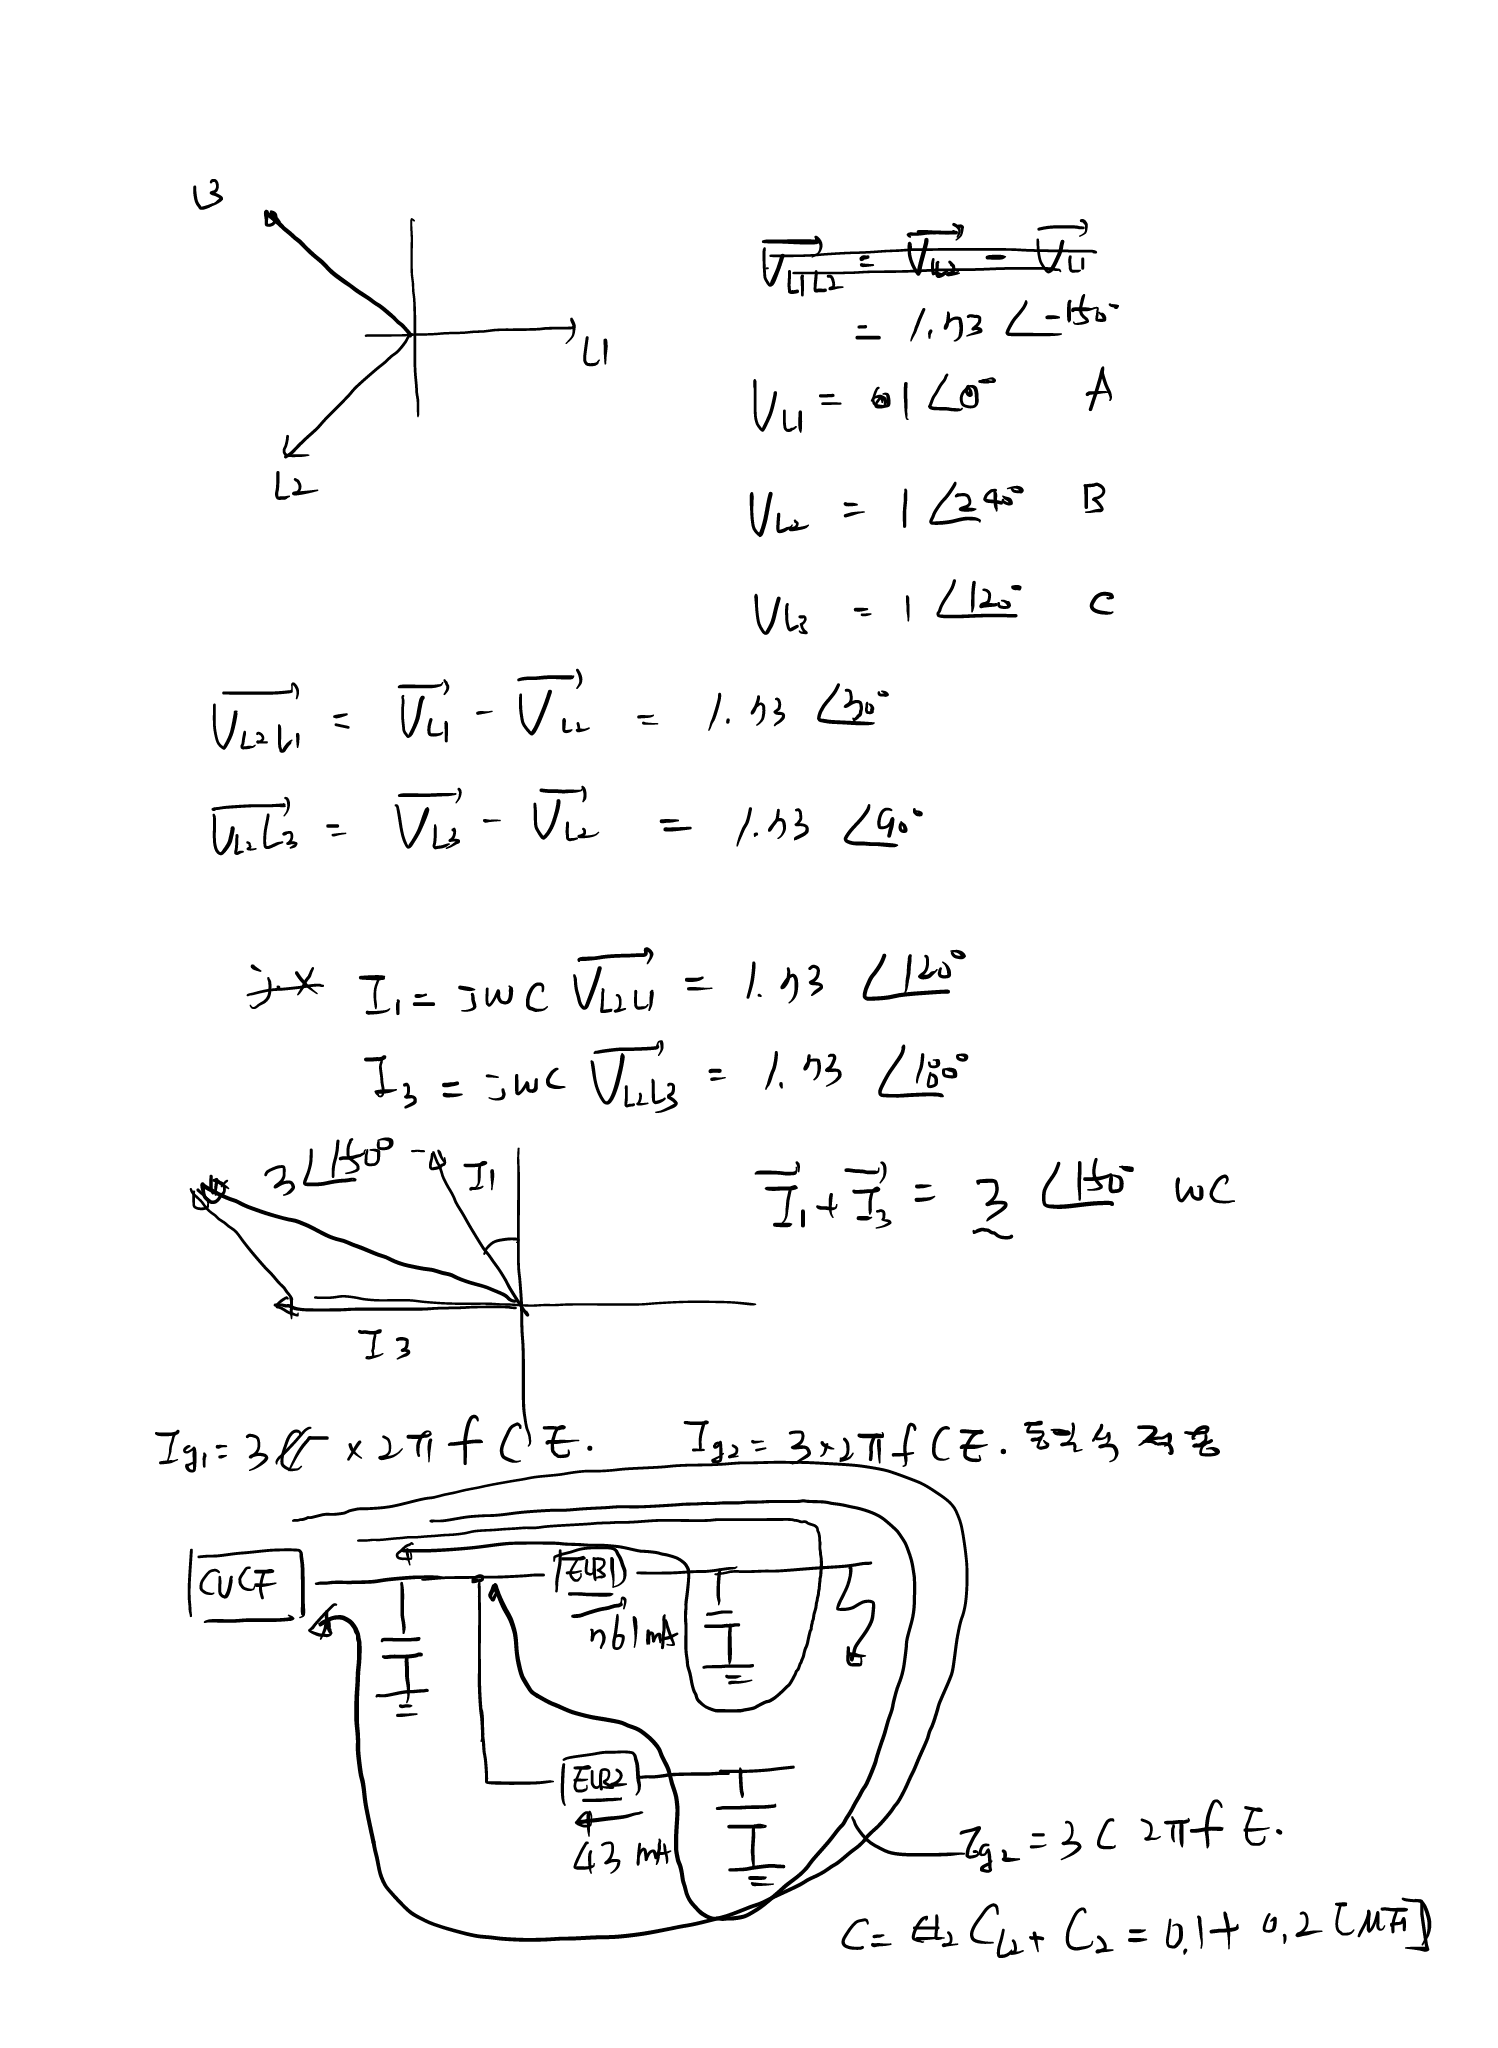 L3
L1
L2
V L1L2 = V L2 - V L1
= 1.73 ∠-150°
V L1 = 1 ∠0° A
V L2 = 1 ∠240° B
V L3 = 1 ∠120° C
V L2L1 = V L1 - V L2 = 1.73 ∠30°
V L2L3 = V L3 - V L2 = 1.73 ∠90°
I1 = jwC V L2L1 = 1.73 ∠120°
I3 = jwC V L2L3 = 1.73 ∠180°
3∠150°
I1
I1 + I3 = 3 ∠150° wC
I3
Ig1 = 3 × 2πf C E. Ig2 = 3×2πf C E.
CVCF
ELB1
761mA
ELB2
43 mA
Ig2 = 3 C 2πf E.
C = CL2 + C2 = 0.1 + 0.2 [μF]